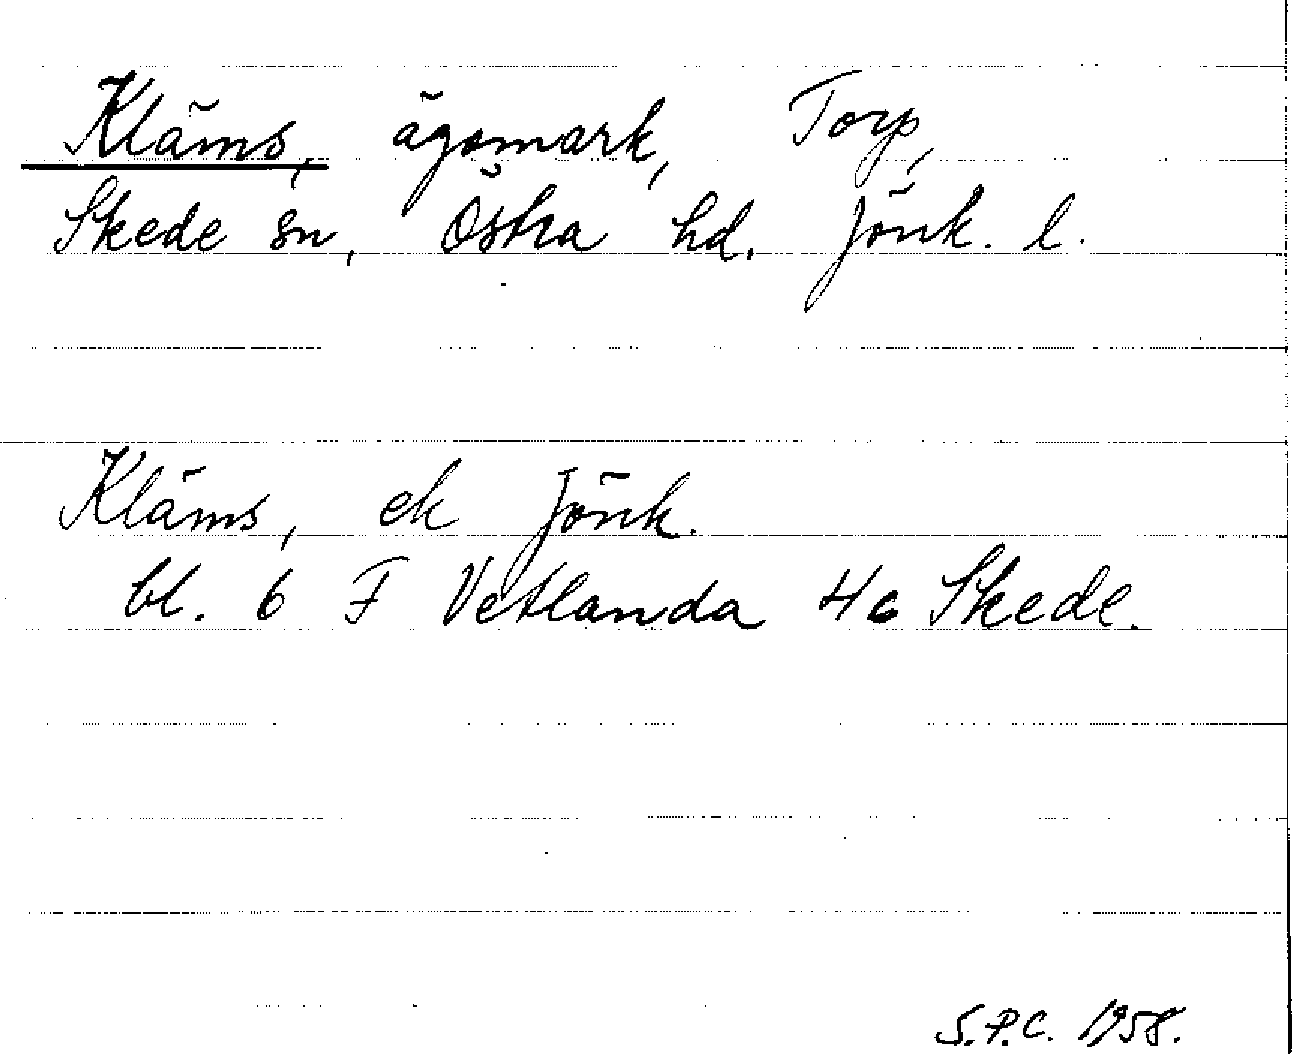 Kläms, ägomark, Torp,
Skede sn, Östra hd. Jönk. l.
Kläms, ek Jönk.
bl. 6 F Vetlanda 4c Skede.
S.P.C. 1958.